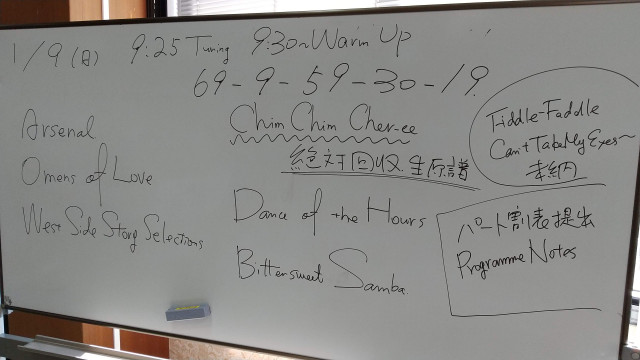 1/9(日) 9:25 Tuning 9:30~Warm Up
69-9-59-30-19
Arsenal
Omens of Love
West Side Story Selections
Chim Chim Cher-ee
絶対回収 生原譜
Dance of the Hours
Bittersweet Samba
Fiddle-Faddle
Can't Take My Eyes~
未納
パート割表提出
Programme Notes